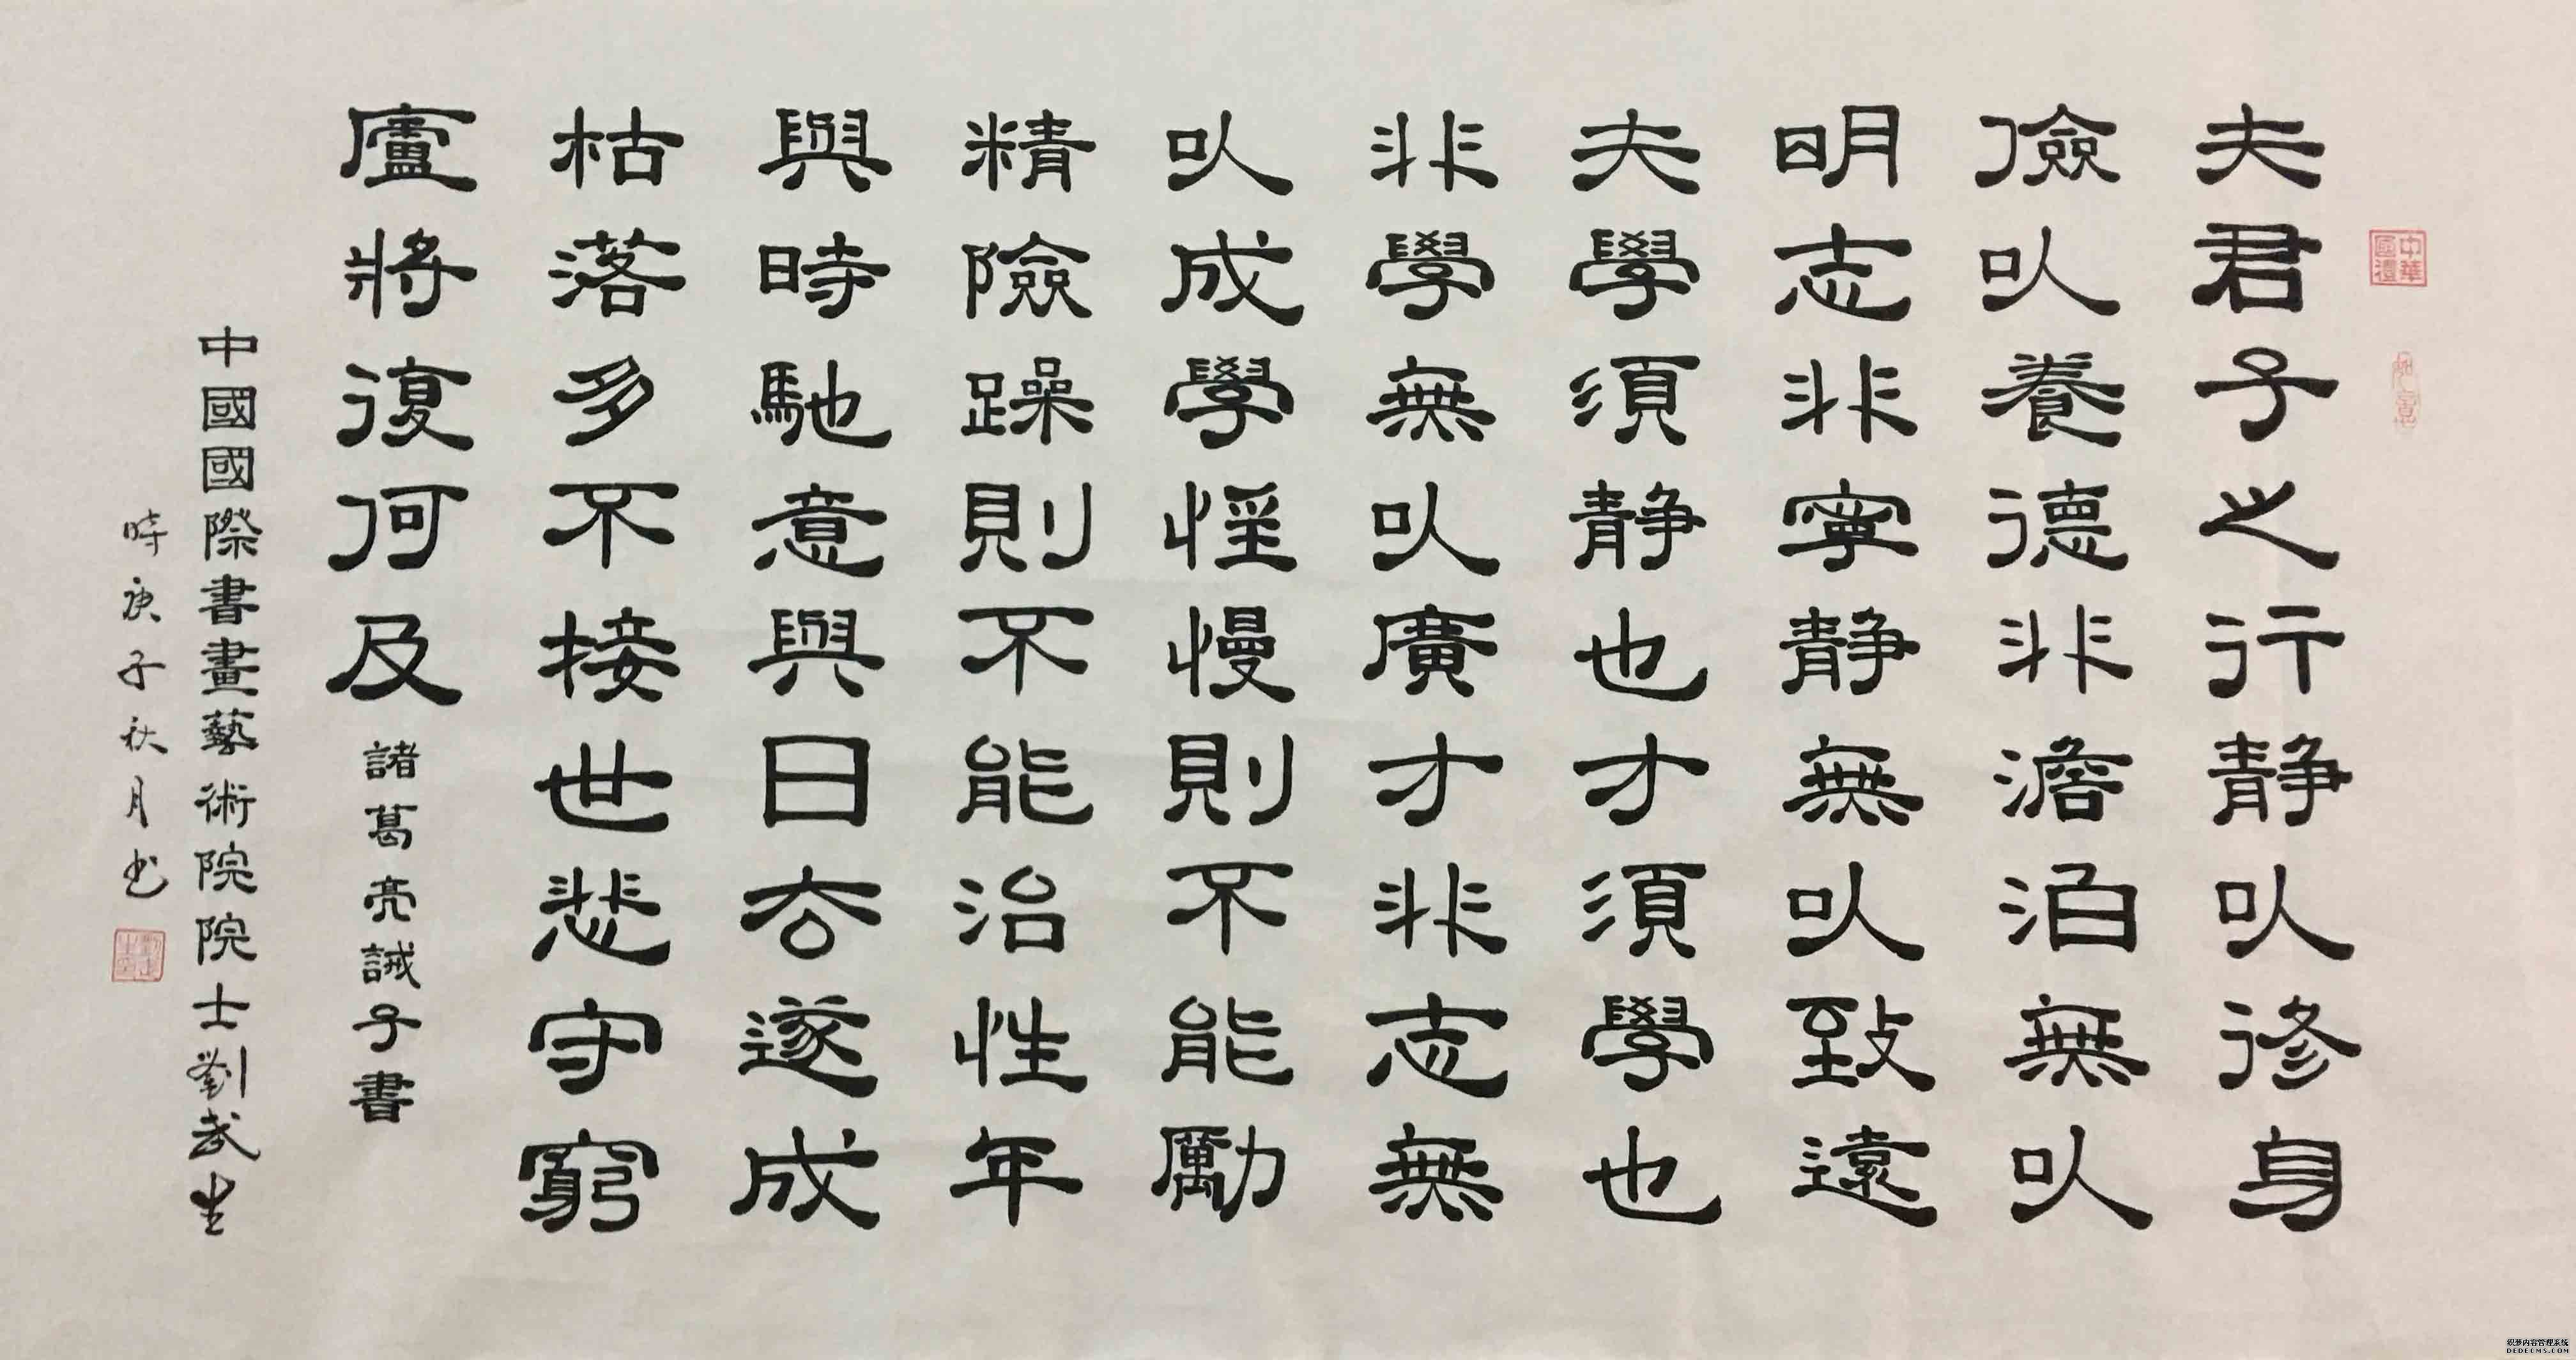 中華國禮
夫君子之行静以修身
儉以養德非澹泊無以
明志非寧静無以致遠
夫學須静也才須學也
非學無以廣才非志無
以成學慢則不能勵
精險躁則不能治性年
與時馳意與日去遂成
枯落多不接世悲守窮
廬將復何及
諸葛亮誡子書
中國國際書畫藝術院院士劉武生
時庚子秋月书
织梦内容管理系统
DEDECMS.COM